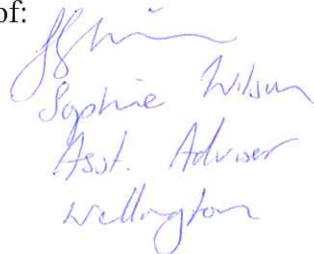 of:
Sophie Wilson
Asst. Adviser
Wellington